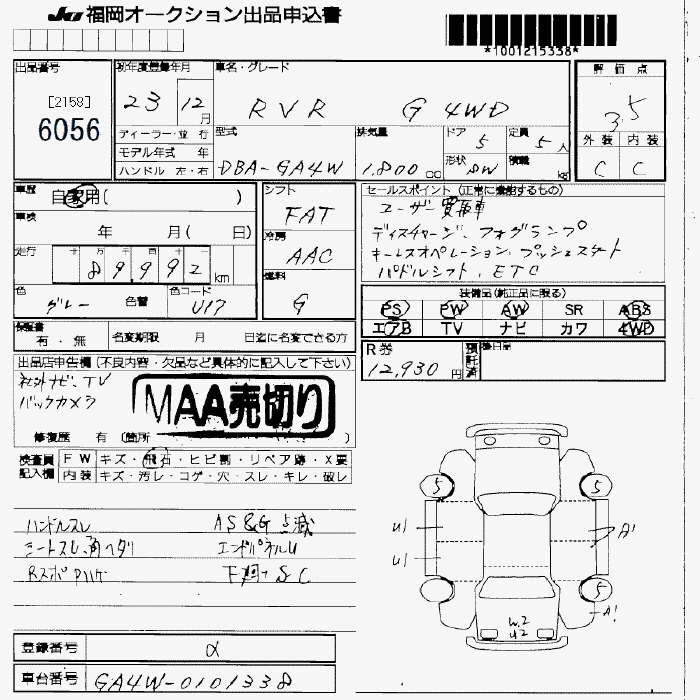 JU 福岡オークション出品申込書
*1001215338*
出品番号
[2158]
6056
初年度登録年月
23 12月
車名・グレード
RVR G 4WD
評価点
3.5
外装 内装
C C
ディーラー・並行
モデル年式 年
ハンドル 左・右
型式
DBA-GA4W
排気量
1,800 cc
ドア 5
形状 SW
定員 5人
積載 kg
車歴
自家用( )
車検
年 月( 日)
走行
十 万 千 百 十 一
89992 km
色
グレー
色替
色コード
U17
シフト
FAT
冷房
AAC
燃料
G
セールスポイント(正常に機能するもの)
ユーザー買取車
ディスチャージ、フォグランプ
キーレスオペレーション、プッシュスタート
パドルシフト、ETC
装備品(純正品に限る)
PS PW AW SR ABS
エアB TV ナビ カワ 4WD
保証書
有・無
名変期限 月 日迄に名変できる方
R券
12,930円
預託済
後日品
出品店申告欄(不良内容・欠品など具体的に記入して下さい)
社外ナビ、TV
バックカメラ
MAA売切り
修復歴 有 (箇所
検査員記入欄
FW キズ・飛石・ヒビ割・リペア跡・X要
内装 キズ・汚レ・コゲ・穴・スレ・キレ・破レ
ハンドルスレ AS&G点滅
シートスレ、角ヘタリ エンドパネルU
下廻サSC
5 5
U1 A1
U1
5 5
A1
W2
U2
登録番号 α
車台番号 GA4W-0101338